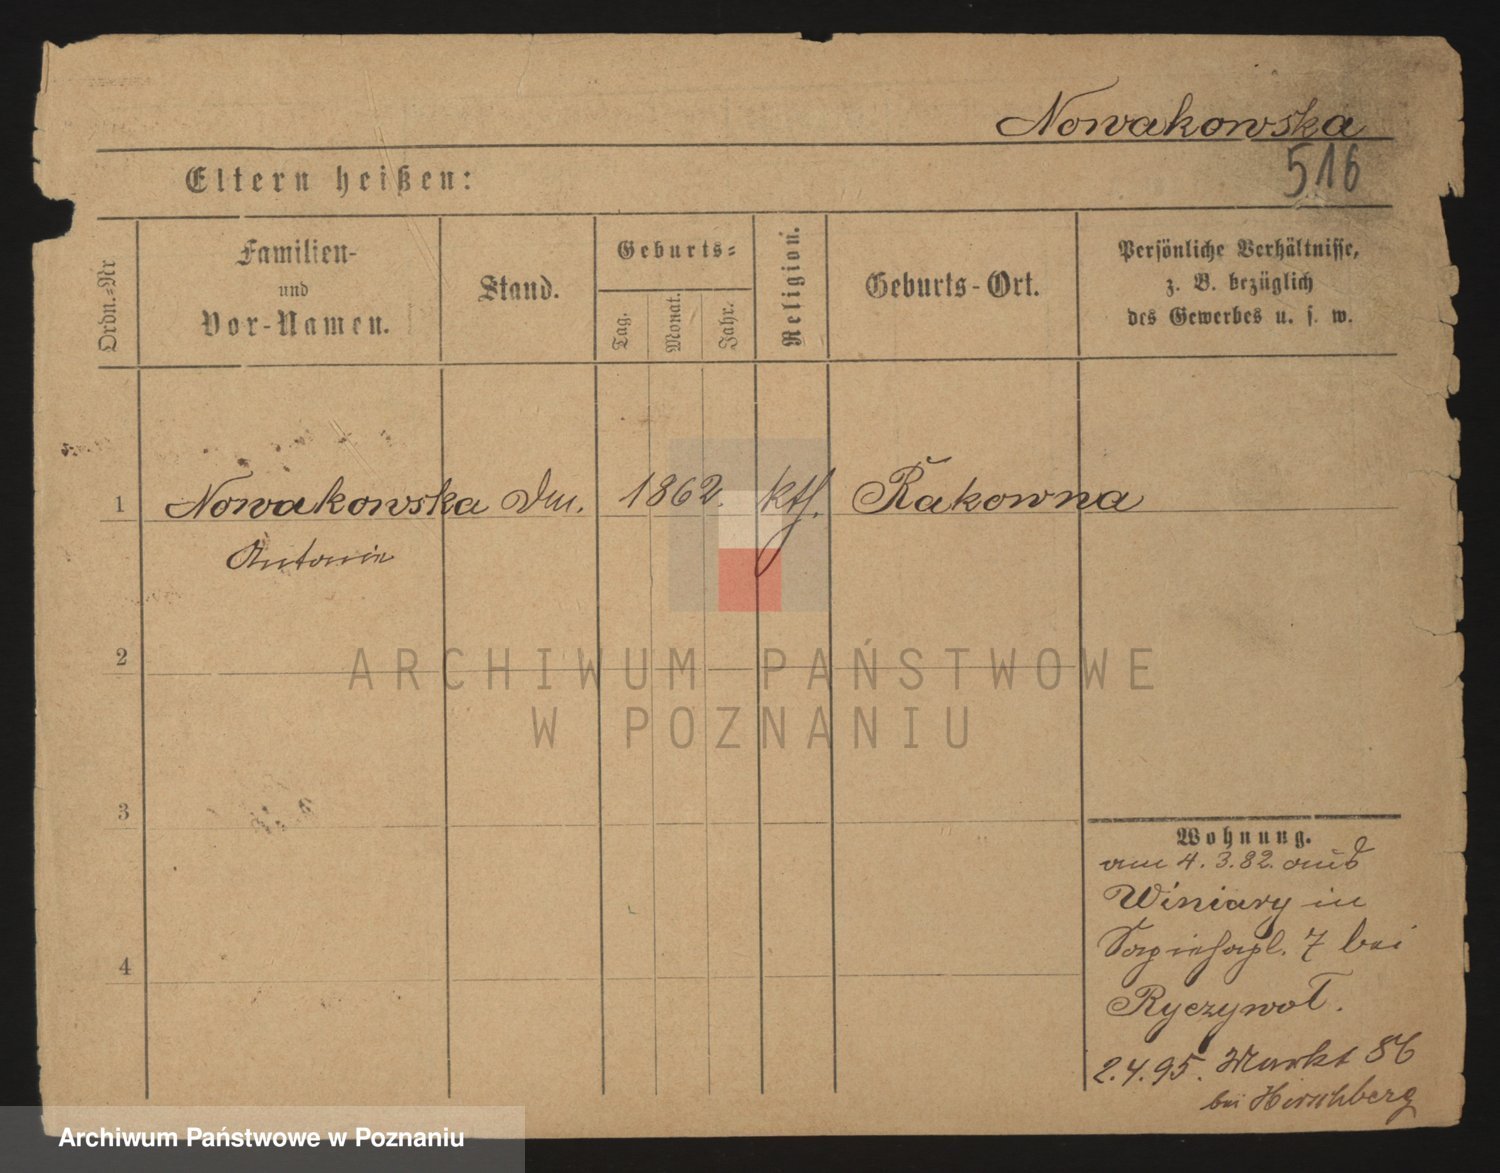 Nowakowska
516
Eltern heißen:
Ordn.-Nr
Familien-
und
Vor-Namen.
Stand.
Geburts-
Tag.
Monat.
Jahr.
Religion.
Geburts-Ort.
Persönliche Verhältnisse,
z. B. bezüglich
des Gewerbes u. s. w.
1 Nowakowska 1862. kth. Rakowna
Antonie
2
ARCHIWUM PAŃSTWOWE
W POZNANIU
3
Wohnung.
am 4.3.82. aus
Winiary in
Sapiehapl. 7 bei
4
Ryczywoł.
2.4.95. Markt 86
bei Hirschberg
Archiwum Państwowe w Poznaniu